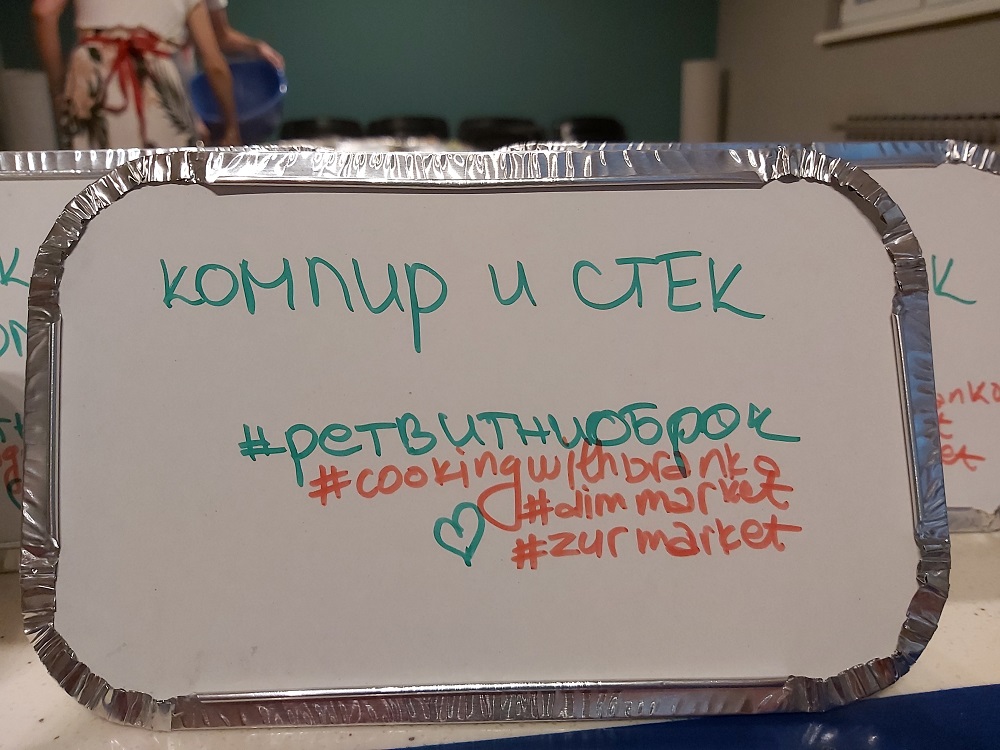 компир и стек
#ретвитниоброк
#cookingwithbranko
#dimmarket
#zurmarket